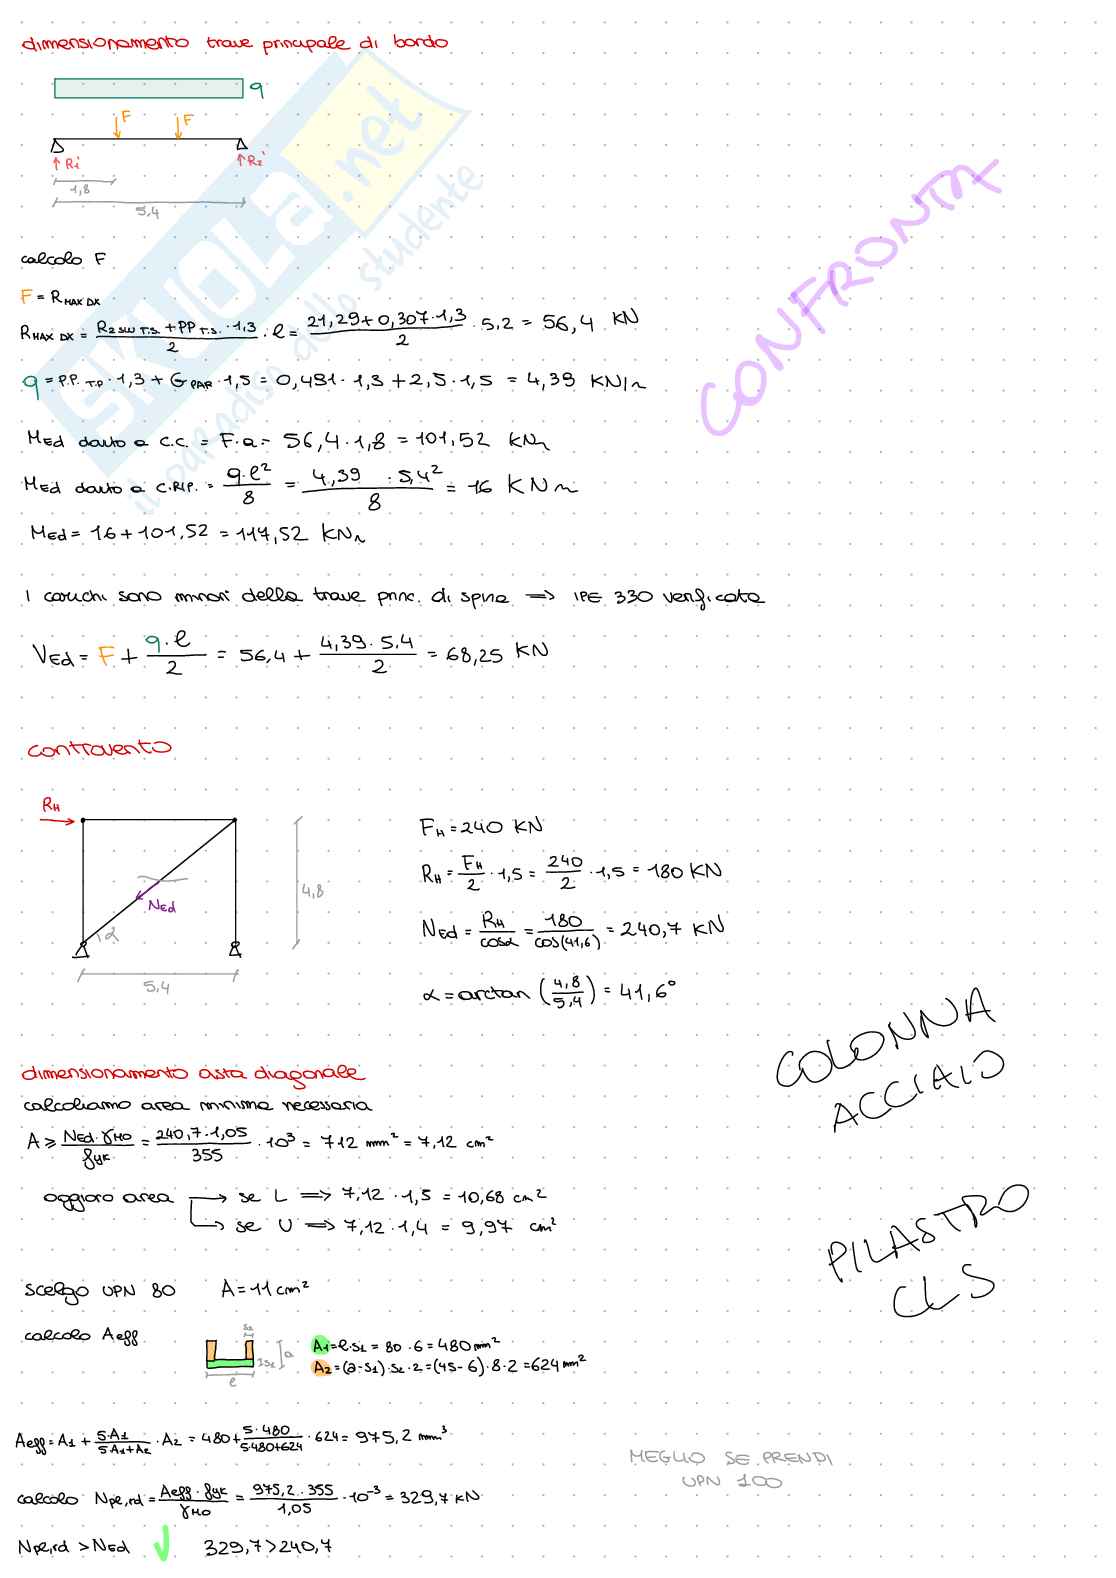 dimensionamento trave principale di bordo
q
F F
R1 R2
1,8
5,4
SKUOLA.net
il paradiso dello studente
CONFRONTA
calcolo F
F = R MAX DX
R MAX DX = (R2 SLU T.S. + PP T.S. · 1,3)/2 · l = (21,29 + 0,307 · 1,3)/2 · 5,2 = 56,4 KN
q = P.P. T.P · 1,3 + G PAR · 1,5 = 0,491 · 1,3 + 2,5 · 1,5 = 4,39 KN/m
MEd dovuto a C.C. = F·a = 56,4 · 1,8 = 101,52 KNm
MEd dovuto a C.RIP. = q·l²/8 = 4,39 · 5,4²/8 = 16 KNm
MEd = 16 + 101,52 = 117,52 KNm
I carichi sono minori della trave princ. di spina ⟹ IPE 330 verificata
VEd = F + q·l/2 = 56,4 + 4,39 · 5,4/2 = 68,25 KN
controvento
RH
NEd
α
4,8
5,4
FH = 240 KN
RH = FH/2 · 1,5 = 240/2 · 1,5 = 180 KN
NEd = RH/cosα = 180/cos(41,6) = 240,7 KN
α = arctan (4,8/5,4) = 41,6°
COLONNA
ACCIAIO
dimensionamento asta diagonale
calcoliamo area minima necessaria
A ≥ NEd · γM0/fyk = 240,7 · 1,05/355 · 10³ = 712 mm² = 7,12 cm²
aggioro area → se L ⟹ 7,12 · 1,5 = 10,68 cm²
→ se U ⟹ 7,12 · 1,4 = 9,97 cm²
PILASTRO
CLS
scelgo UPN 80 A = 11 cm²
calcolo Aeff
s2
s1
a
l
A1 = l·s1 = 80 · 6 = 480 mm²
A2 = (a - s1) · s2 · 2 = (45 - 6) · 8 · 2 = 624 mm²
Aeff = A1 + 5·A1/(5·A1+A2) · A2 = 480 + 5·480/(5·480+624) · 624 = 975,2 mm³
MEGLIO SE PRENDI
UPN 100
calcolo Npl,rd = Aeff · fyk/γM0 = 975,2 · 355/1,05 · 10⁻³ = 329,7 KN
Npl,rd > NEd ✓ 329,7 > 240,7